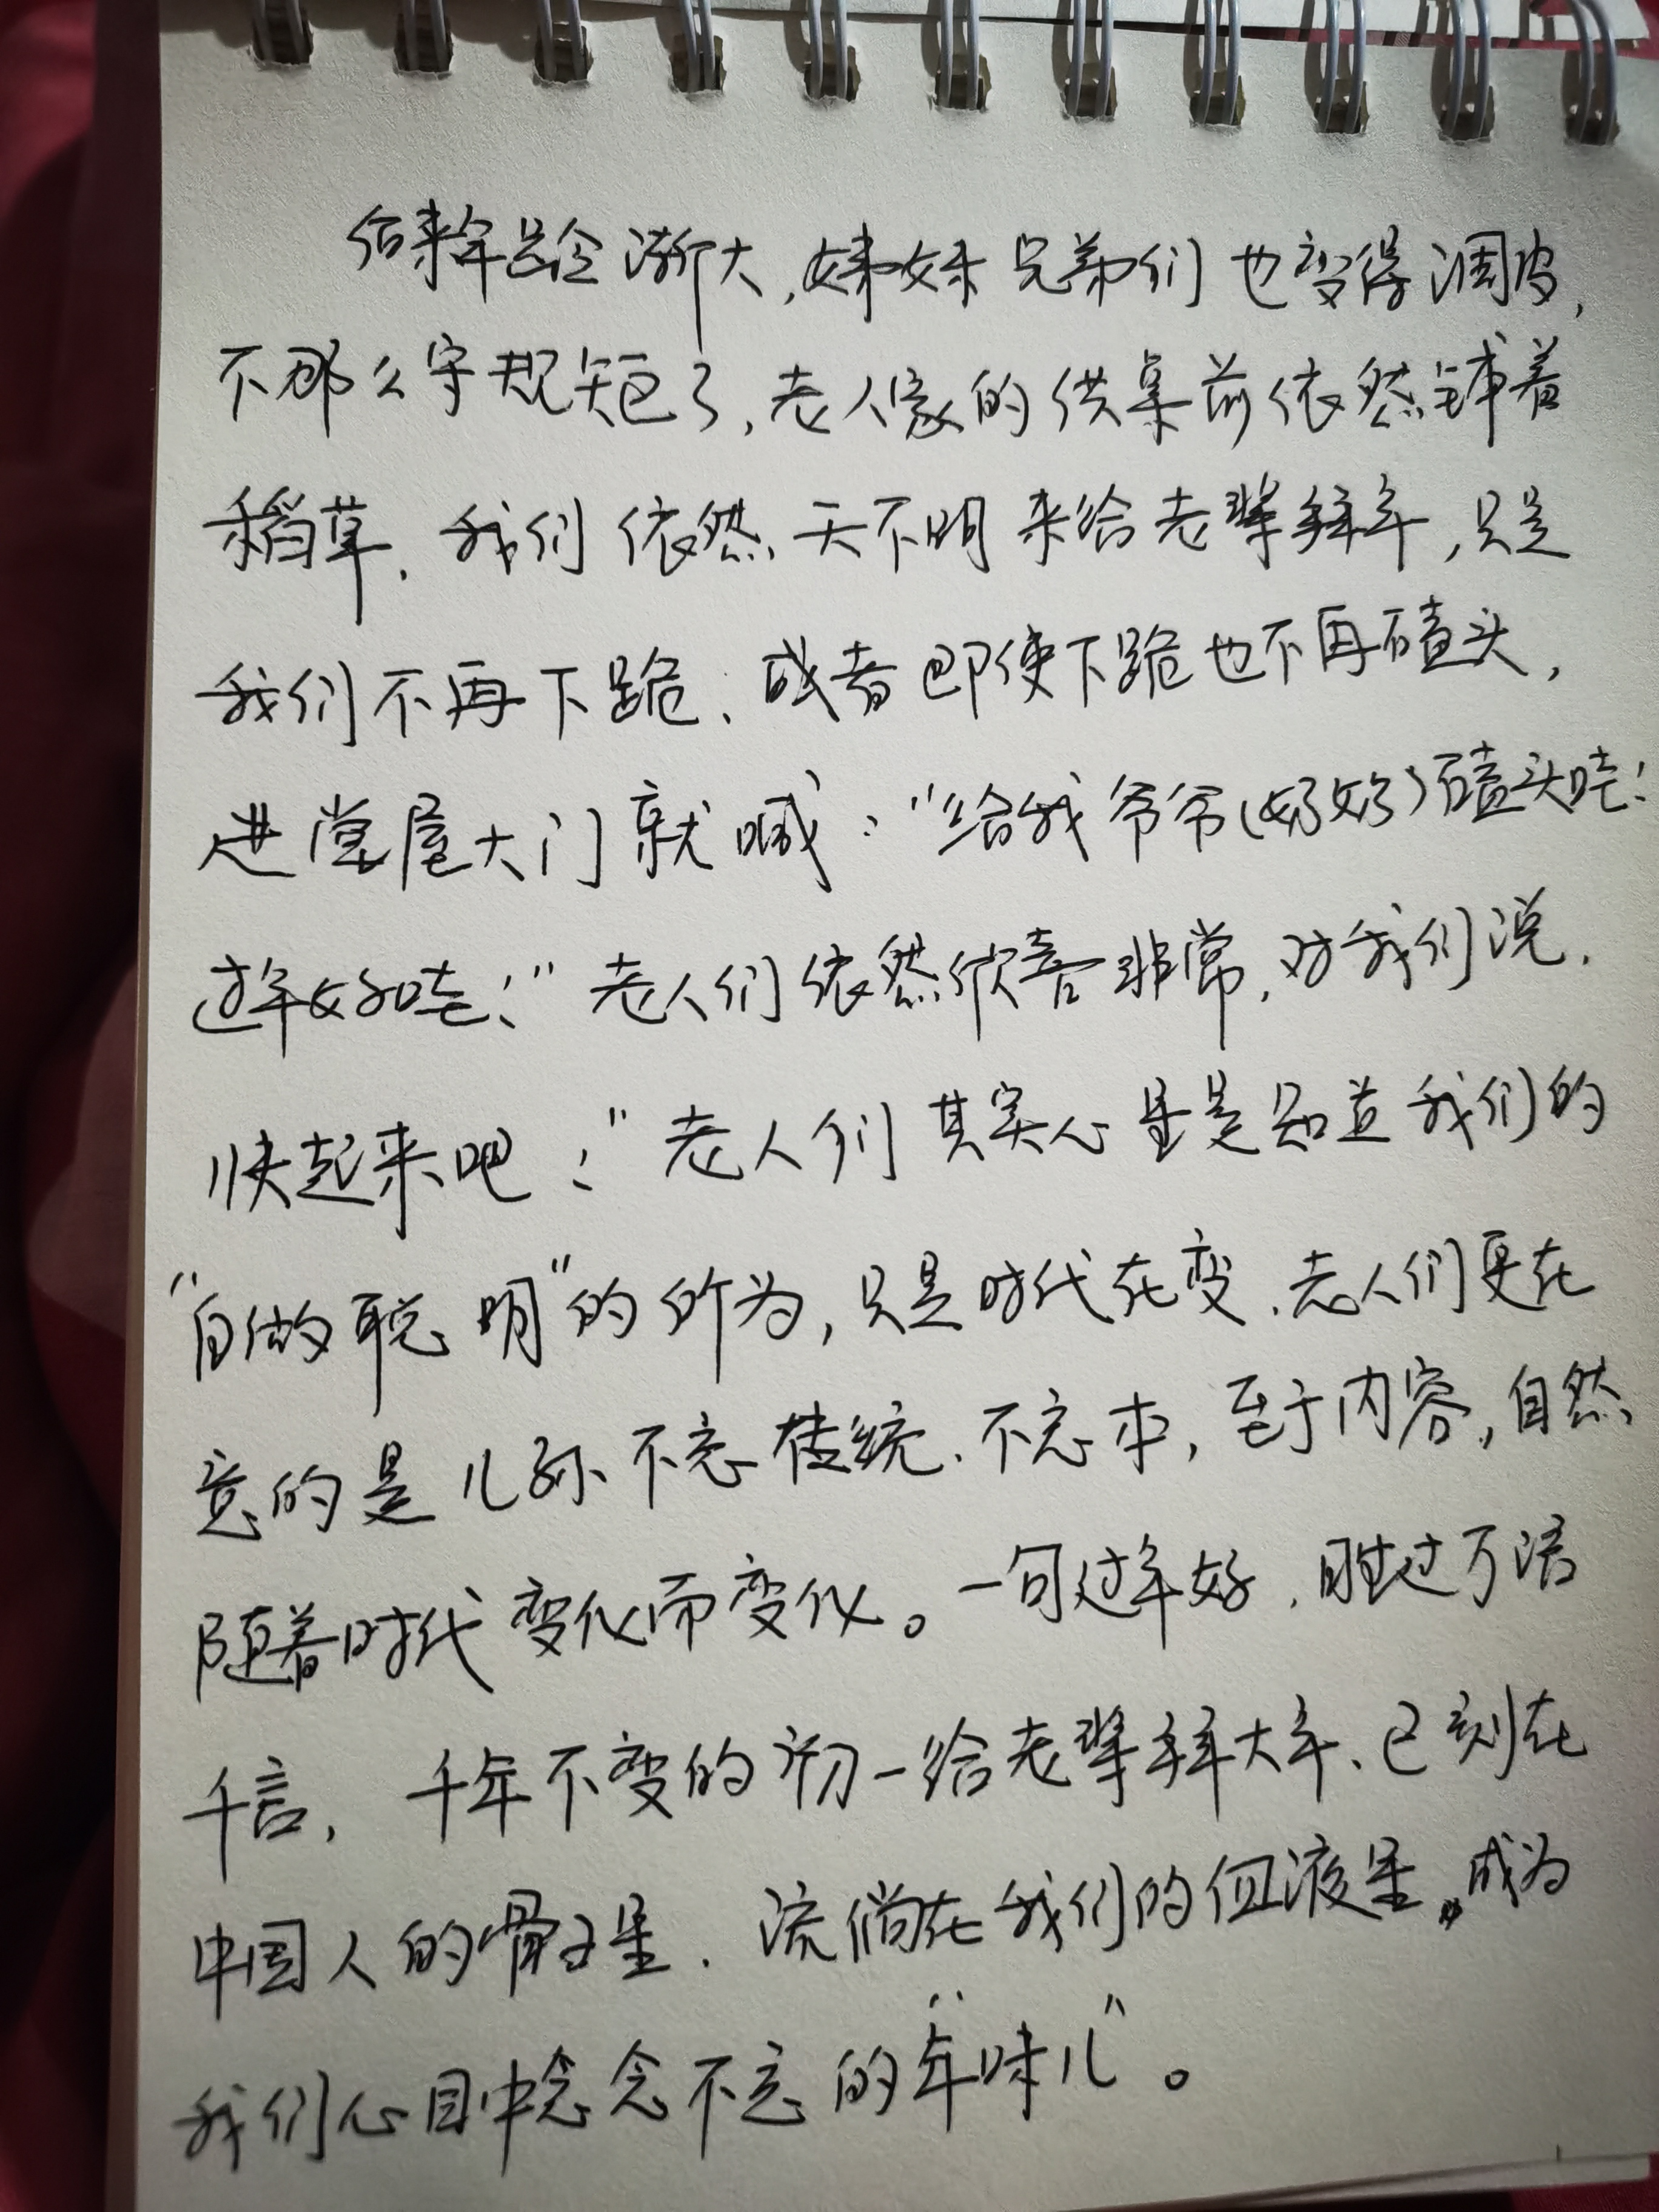 后来年龄渐大,姊妹兄弟们也变得调皮,
不那么守规矩了,老人家的供桌前依然铺着
稻草,我们依然天不明来给老辈拜年,只是
我们不再下跪、或者即使下跪也不再磕头,
进堂屋大门就喊:“给我爷爷(奶奶)磕头哇!
过年好哇!”老人们依然欣喜非常,对我们说,
快起来吧!”老人们其实心里是知道我们的
“自做聪明”的所为,只是时代在变、老人们更在
意的是儿孙不忘传统、不忘本,至于内容,自然
随着时代变化而变化。一句过年好,胜过万语
千言,千年不变的初一给老辈拜大年、已刻在
中国人的骨子里、流倘在我们的血液里,成为
我们心目中念念不忘的“年味儿”。